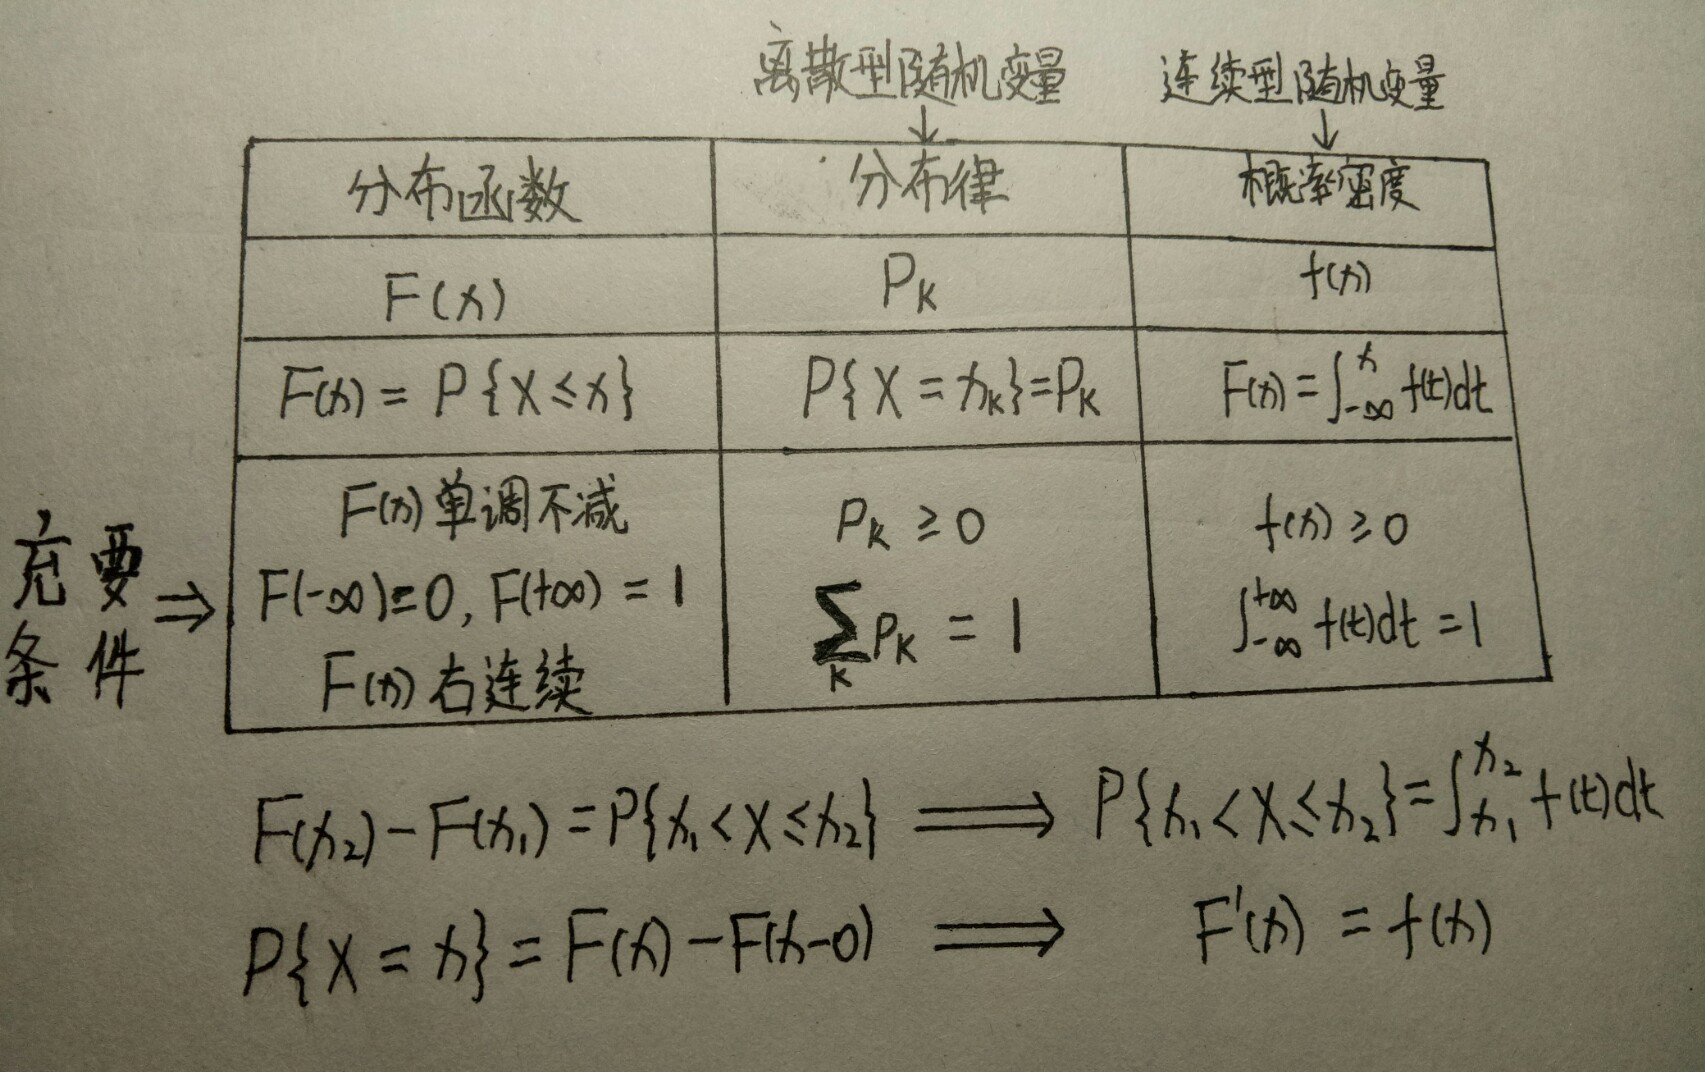 离散型随机变量 连续型随机变量
↓ ↓
分布函数 分布律 概率密度
F(x) P_K f(x)
F(x) = P{X≤x} P{X=x_K}=P_K F(x)=∫_{-∞}^{x} f(t)dt
F(x)单调不减 P_K ≥ 0 f(x) ≥ 0
充要条件 ⇒ F(-∞)=0, F(+∞) = 1 ∑_K P_K = 1 ∫_{-∞}^{+∞} f(t)dt = 1
F(x)右连续
F(x₂)-F(x₁)=P{x₁<X≤x₂} ⟹ P{x₁<X≤x₂}=∫_{x₁}^{x₂} f(t)dt
P{X=x}=F(x)-F(x-0) ⟹ F'(x) = f(x)